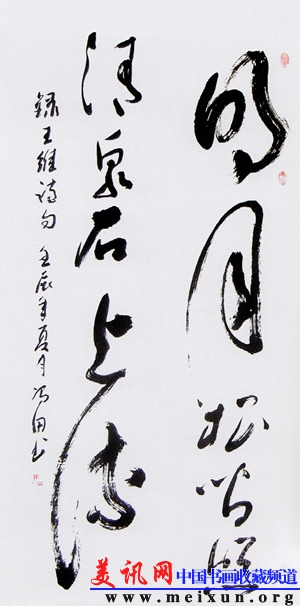 明月松间照
清泉石上流
録王维诗句 壬辰年夏月
美讯网 中国书画收藏频道
www.meixun.org